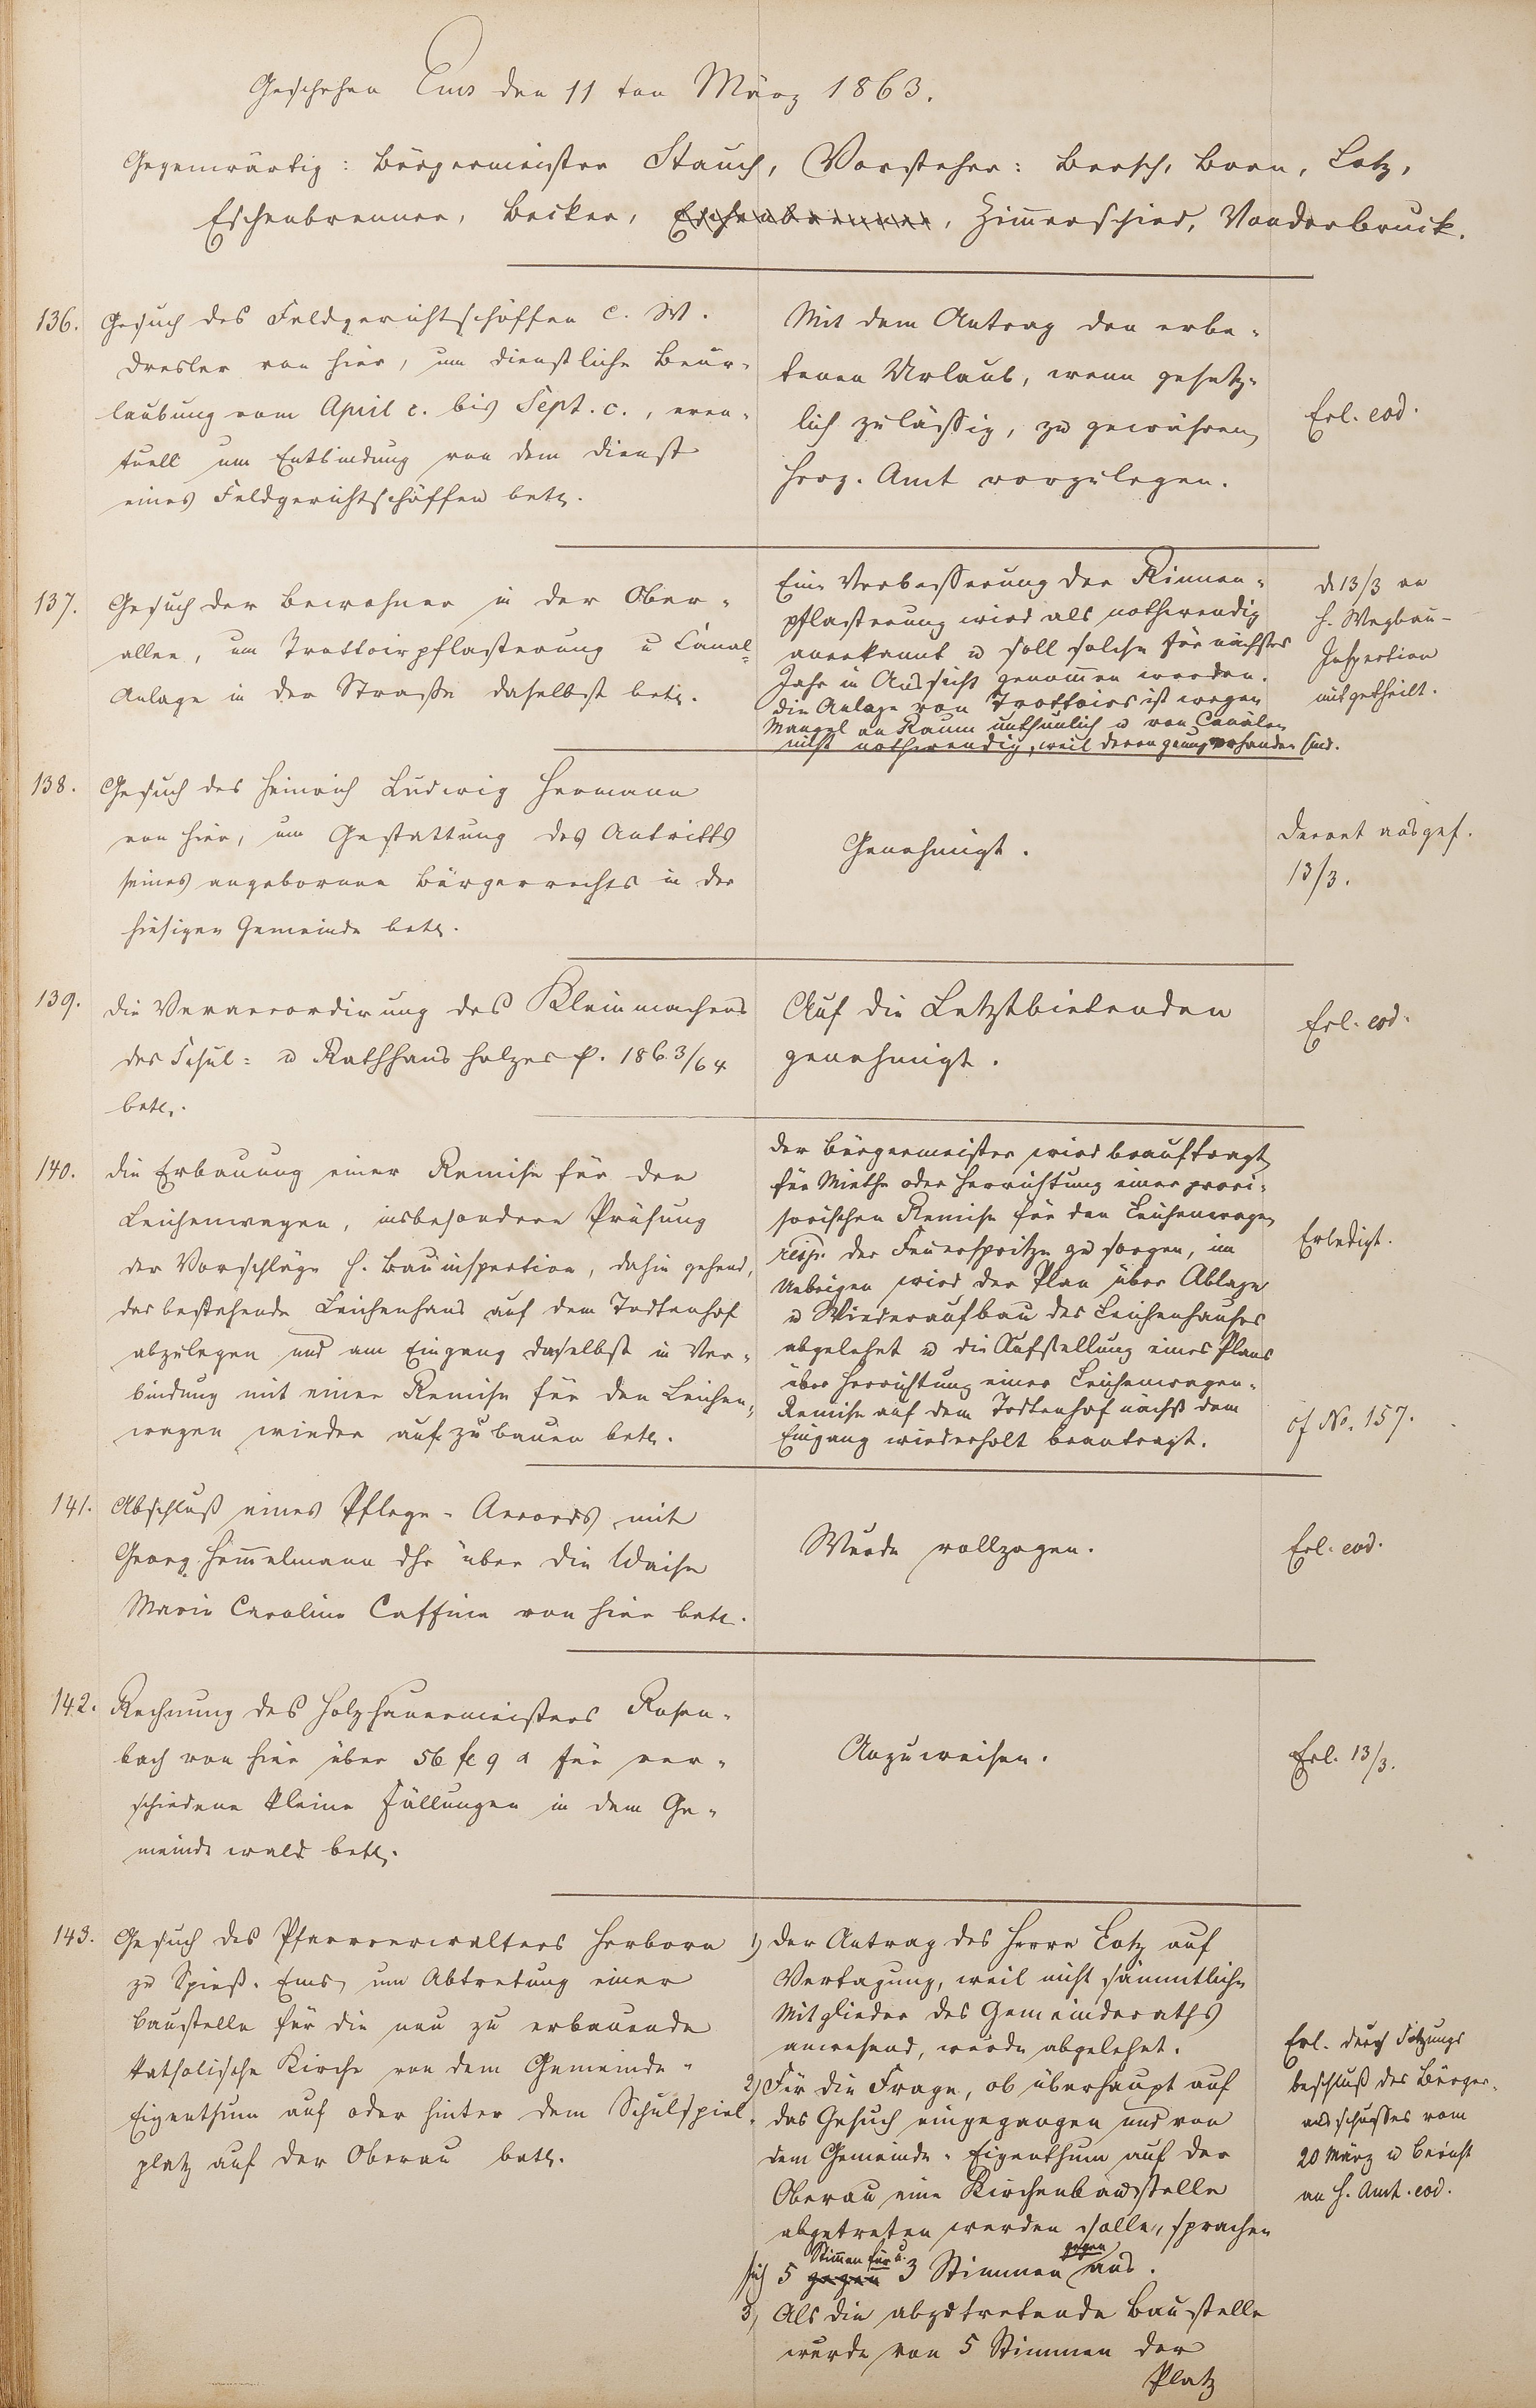 Geschehen Ems den 11 ten März 1863.
Gegenwärtig: Bürgermeister Stauch, Vorsteher: Bersch, Born, Lotz,
Eschenbrenner, Becker, Eschenbrenner, Zim̄erschied, Vonderbruck.
136. Gesuch des Feldgerichtschöffen C. W.
Dresler von hier, um dienstliche Beur-
laubung vom April c. bis Sept. c., even-
tuell um Entbindung von dem Dienst
eines Feldgerichtschöffen betr.
Mit dem Antrag den erbe-
tenen Urlaub, wenn gesetz-
lich zulässig, zu gewähren,
Herz. Amt vorzulegen.
Erl. eod.
137. Gesuch der Bewohner in der Ober-
allee, um Trottoirpflasterung u Canal-
Anlage in der Straße daselbst betr.
Eine Verbesserung der Rinnen-
pflasterung wird als nothwendig
anerkannt u soll solche für nächstes
Jahr in Aussicht genom̄en werden.
Die Anlage von Trottoirs ist wegen
Mangel an Raum unthunlich u von Canälen
nicht nothwendig, weil deren genug vorhanden sind.
d 13/3 an
H. Wegbau-
Inspection
mitgetheilt.
138. Gesuch des Heinrich Ludwig Hermann
von hier, um Gestattung des Antritts
seines angebornen Bürgerrechts in der
hiesigen Gemeinde betr.
Genehmigt.
Decret ausgef.
13/3.
139. Die Veraccordirung des Kleinmachens
des Schul- u Rathhausholzes p. 1863/64
betr.
Auf die Letztbietenden
genehmigt.
Erl. eod.
140. Die Erbauung einer Remise für den
Leichenwagen, insbesondere Prüfung
der Vorschläge H. Bauinspection, dahin gehend,
das bestehende Leichenhaus auf dem Todtenhof
abzulegen und am Eingang daselbst in Ver-
bindung mit einer Remise für den Leichen-
wagen wieder aufzubauen betr.
Der Bürgermeister wird beauftragt
für Miethe oder Herrichtung einer provi-
sorischen Remise für den Leichenwagen
resp. der Feuerspritze zu sorgen, im
Uebrigen wird der Plan über Ablage
u Wiederaufbau des Leichenhauses
abgelehnt u die Aufstellung eines Plans
über Herrichtung einer Leichenwagen-
Remise auf dem Todtenhof nächst dem
Eingang wiederholt beantragt.
Erledigt.
cf No. 157.
141. Abschluß eines Pflege-Accords mit
Georg Him̄elmann dhr über die Waise
Marie Caroline Caffine von hier betr.
Wurde vollzogen.
Erl. eod.
142. Rechnung des Holzhauermeisters Rosen-
bach von hier über 56 fl 9 x für ver-
schiedene kleine Fällungen in dem Ge-
meindewald betr.
Anzuweisen.
Erl. 13/3.
143. Gesuch des Pfarrverwalters Herborn
zu Spieß-Ems, um Abtretung einer
Baustelle für die neu zu erbauende
katholische Kirche von dem Gemeinde-
Eigenthum auf oder hinter dem Schulspiel-
platz auf der Oberau betr.
1) Der Antrag des Herrn Lotz auf
Vertagung, weil nicht sämmtliche
Mitglieder des Gemeinderaths
anwesend, wurde abgelehnt.
2) Für die Frage, ob überhaupt auf
das Gesuch eingegangen und von
dem Gemeinde-Eigenthum auf der
Oberau eine Kirchenbaustelle
abgetreten werden solle, sprachen
sich 5 gegen Stim̄en für u. 3 Stimmen gegen aus.
3) Als die abzutretende Baustelle
wurde von 5 Stimmen der
Platz
Erl. durch Sitzungs
beschluß des Bürger-
ausschusses vom
20 März u Bericht
an H. Amt. eod.